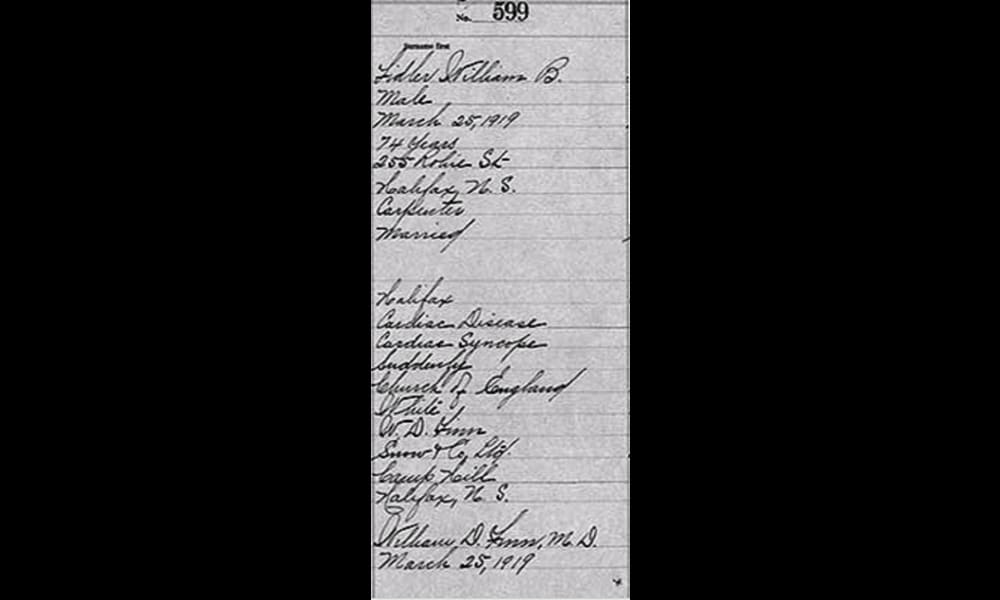 No. 599
Surname first
Fidler William B.
Male
March 25, 1919
74 Years
255 Robie St
Halifax, N. S.
Carpenter
Married
Halifax
Cardiac Disease
Cardiac Syncope
Suddenly
Church of England
White
W. D. Finn
Snow & Co, Ltd.
Camp Hill
Halifax, N. S.
William D. Finn, M. D.
March 25, 1919